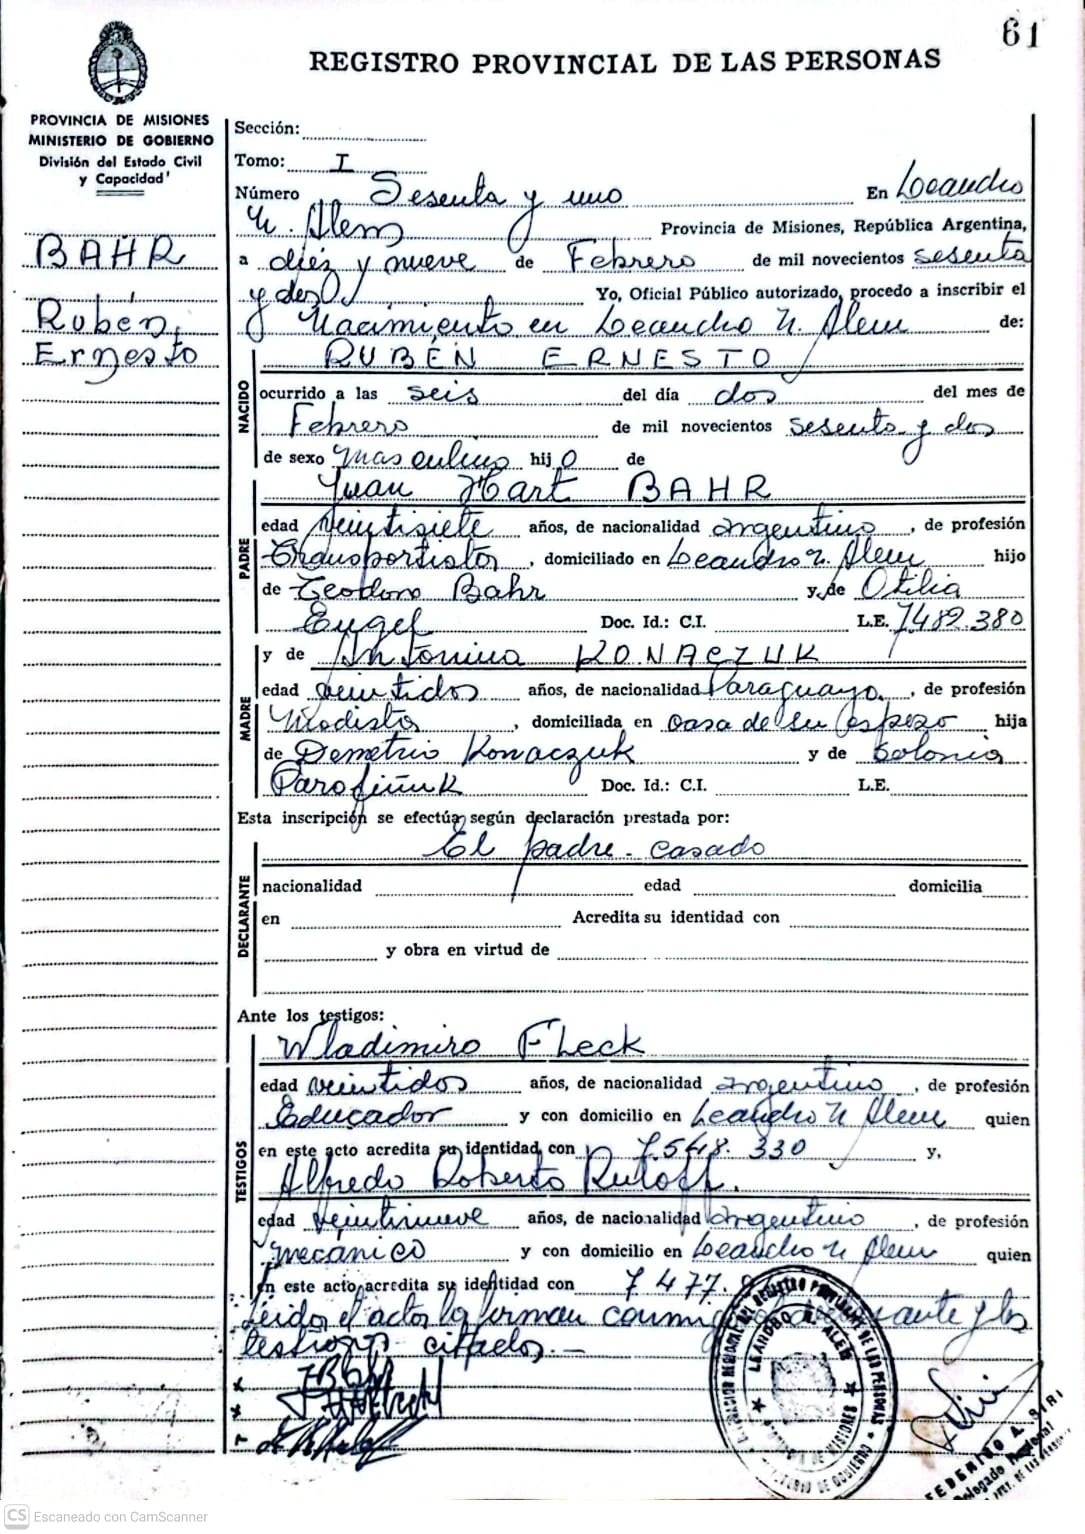 61
REGISTRO PROVINCIAL DE LAS PERSONAS
PROVINCIA DE MISIONES
MINISTERIO DE GOBIERNO
División del Estado Civil
y Capacidad
BAHR
Rubén
Ernesto
Sección:
Tomo: I
Número Sesenta y uno En Leandro
N. Alem Provincia de Misiones, República Argentina,
a diez y nueve de Febrero de mil novecientos sesenta
y dos Yo, Oficial Público autorizado, procedo a inscribir el
Nacimiento en Leandro N. Alem de:
NACIDO
RUBÉN ERNESTO
ocurrido a las seis del día dos del mes de
Febrero de mil novecientos sesenta y dos
de sexo masculino hijo de
PADRE
Juan Hart BAHR
edad veintisiete años, de nacionalidad argentino, de profesión
Transportista, domiciliado en Leandro N. Alem hijo
de Teodoro Bahr y de Otilia
Engel Doc. Id.: C.I. L.E. 7489.380
MADRE
y de Antonina KONACZUK
edad veintidos años, de nacionalidad Paraguaya, de profesión
Modista, domiciliada en casa de su esposo hija
de Demetrio Konaczuk y de
Doc. Id.: C.I. L.E.
Esta inscripción se efectúa según declaración prestada por:
DECLARANTE
El padre - casado
nacionalidad edad domicilia
en Acredita su identidad con
y obra en virtud de
Ante los testigos:
TESTIGOS
Wladimiro Fleck
edad veintidos años, de nacionalidad argentino, de profesión
Educador y con domicilio en Leandro N Alem quien
en este acto acredita su identidad con 7.548.330 y,
Alfredo Roberto
edad veintinueve años, de nacionalidad argentino, de profesión
mecánico y con domicilio en Leandro N Alem quien
en este acto acredita su identidad con 7477.
Leido el acto la firman y los
testigos citados. —
LEANDRO N. ALEM
FEDERICO A. SIRI
Delegado Regional
CS Escaneado con CamScanner